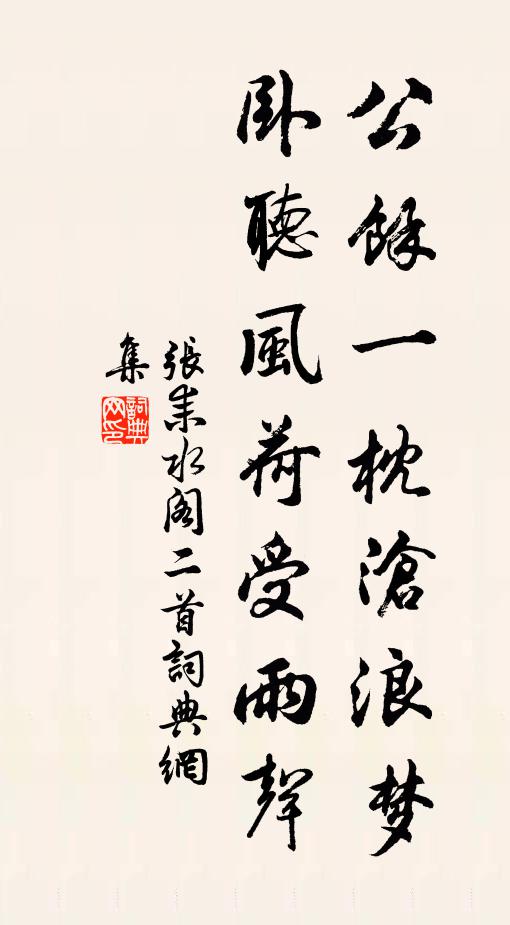 公餘一枕滄浪梦
卧聽風荷受雨聲
張耒水閣二首詞典網
集
詞典
网印